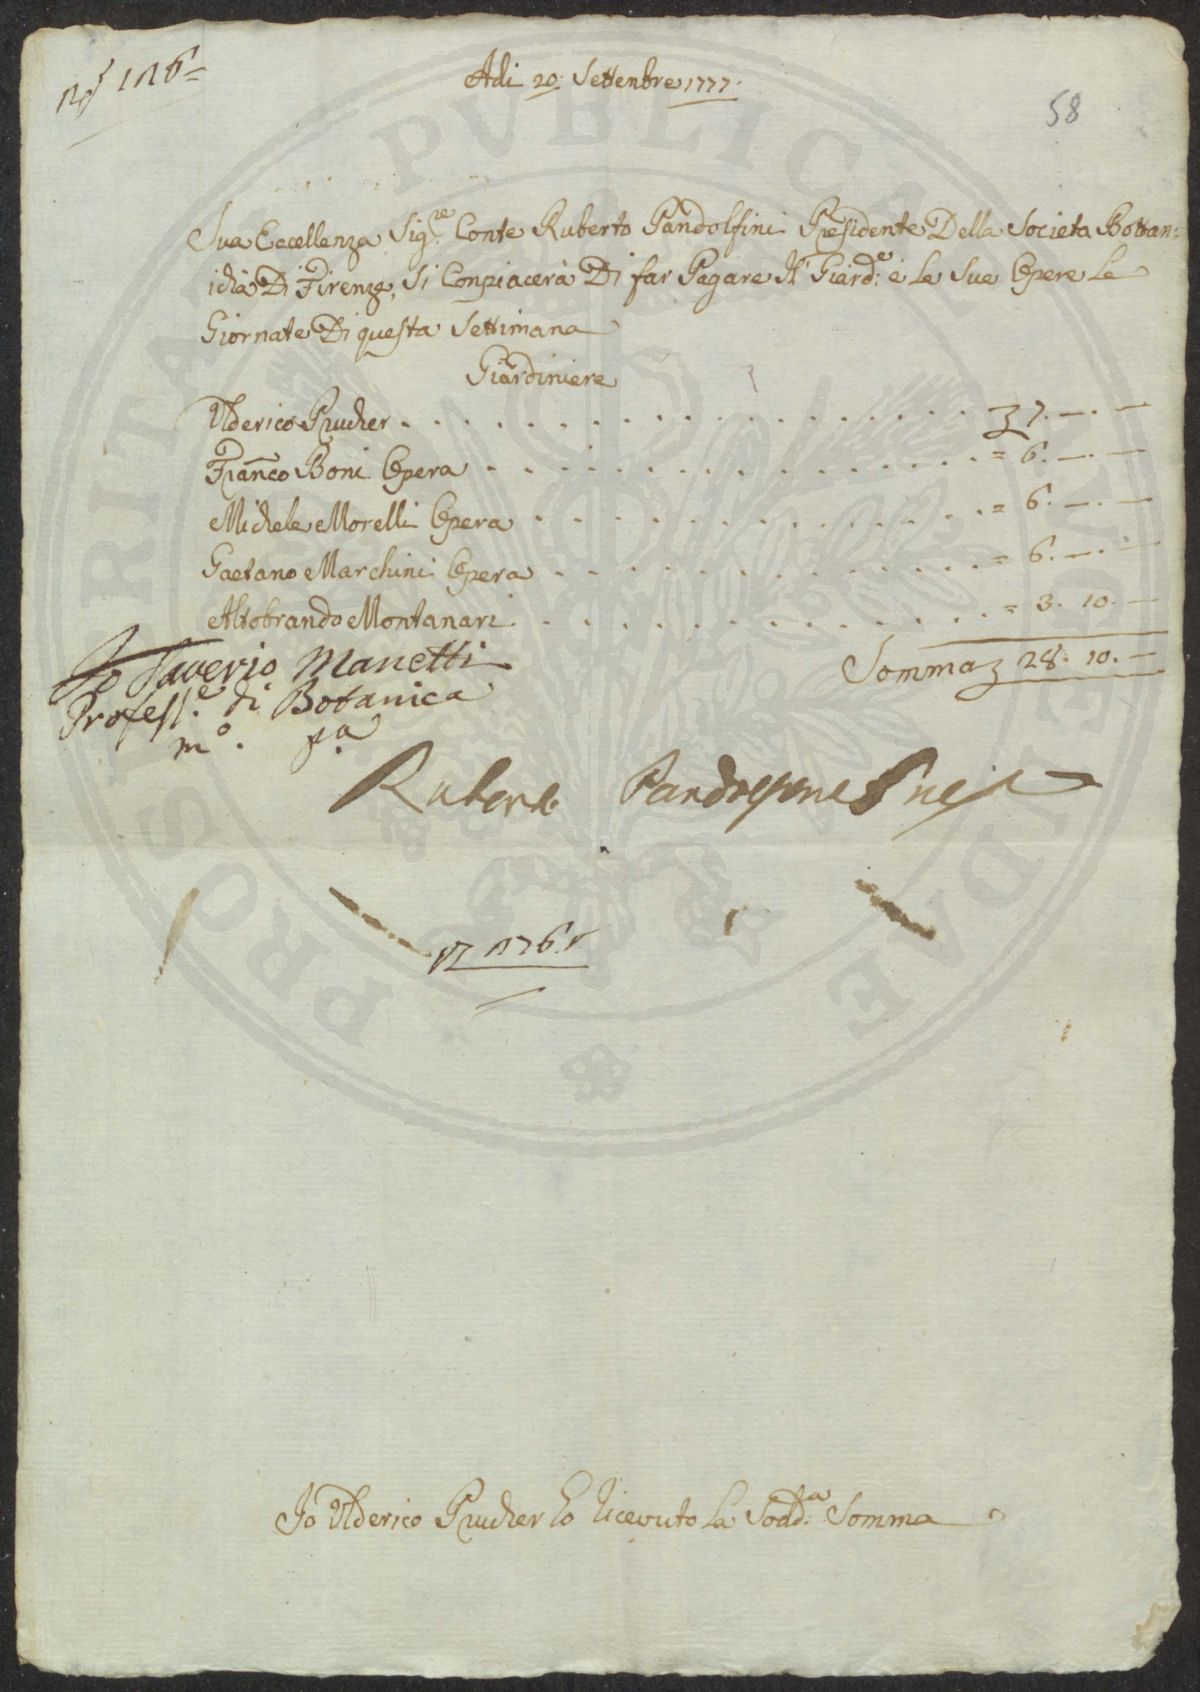 No. 126=
Adi 20: Settenbre 1777.
58
Sua Eccellenza Sig:re Conte Ruberto Pandolfini Presidente Della Societa Bottan=
icha Di Firenze, Si Conpiacerà Di far Pagare Il Giard:e e le Sue Opere le
Giornate Di questa Settimana
Giardiniere
Ulderico Prucher . . . . . . . . . . . . . . . . 7. —. —
Franco Boni Opera . . . . . . . . . . . . . . . = 6. —. —
Michele Morelli Opera . . . . . . . . . . . . . . = 6. —. —
Gaetano Marchini Opera . . . . . . . . . . . . . = 6. —. —
Altobrando Montanari . . . . . . . . . . . . . = 3. 10. —
Somma 28. 10. —
Io Saverio Manetti
Profess.e di Botanica
mo. pa.
Ruberto Pandolfini
Io Ulderico Prucher ho ricevuto la Sodd:a Somma
PROSPERITATI PVBLICAE AVGENDAE